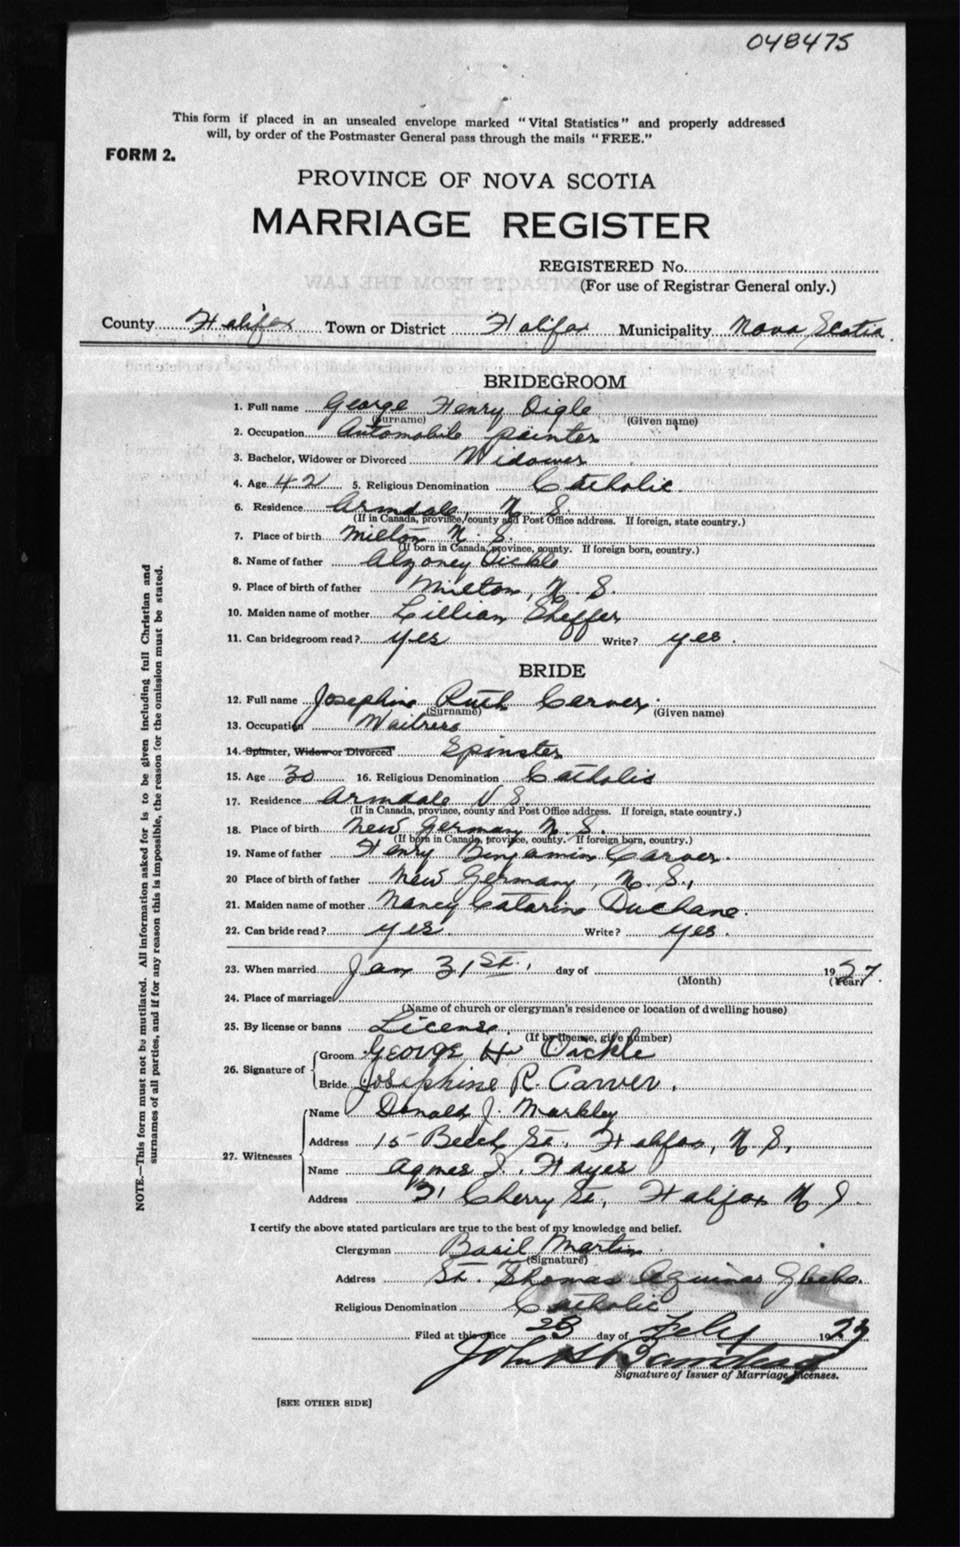 048475
This form if placed in an unsealed envelope marked "Vital Statistics" and properly addressed
will, by order of the Postmaster General pass through the mails "FREE."
FORM 2.
PROVINCE OF NOVA SCOTIA
MARRIAGE REGISTER
REGISTERED No.
(For use of Registrar General only.)
County Halifax Town or District Halifax Municipality Nova Scotia
BRIDEGROOM
1. Full name George Henry Digle
(Surname) (Given name)
2. Occupation Automobile painter
3. Bachelor, Widower or Divorced Widower
4. Age 42 5. Religious Denomination Catholic.
6. Residence Armdale, N. S.
(If in Canada, province, county and Post Office address. If foreign, state country.)
7. Place of birth Milton N. S.
(If born in Canada, province, county. If foreign born, country.)
8. Name of father
9. Place of birth of father Milton, N. S.
10. Maiden name of mother Lillian Sheffer
11. Can bridegroom read? yes Write? yes.
BRIDE
12. Full name Josephine Ruth Carver.
(Surname) (Given name)
13. Occupation Waitress
14. Spinster, Widow or Divorced Spinster
15. Age 30 16. Religious Denomination Catholic
17. Residence Armdale N. S.
(If in Canada, province, county and Post Office address. If foreign, state country.)
18. Place of birth New Germany N. S.
(If born in Canada, province, county. If foreign born, country.)
19. Name of father Henry Benjamin Carver.
20 Place of birth of father New Germany, N. S.,
21. Maiden name of mother Nancy Catarine Duchane.
22. Can bride read? yes. Write? yes.
23. When married Jan 31st, day of 1927.
(Month) (Year)
24. Place of marriage
(Name of church or clergyman's residence or location of dwelling house)
25. By license or banns License.
(If by license, give number)
26. Signature of Groom George H
Bride Josephine R. Carver.
27. Witnesses Name Donald J. Markley
Address 15 Beech St. Halifax, N. S.
Name Agnes J. Hayes
Address Cherry St, Halifax N S
I certify the above stated particulars are true to the best of my knowledge and belief.
Clergyman Basil Martin
(Signature)
Address St. Thomas Aquinas Glebe.
Religious Denomination Catholic
Filed at this office day of Feby 19
John
Signature of Issuer of Marriage Licenses.
[SEE OTHER SIDE]
NOTE.—This form must not be mutilated. All information asked for is to be given including full Christian and
surnames of all parties, and if for any reason this is impossible, the reason for the omission must be stated.